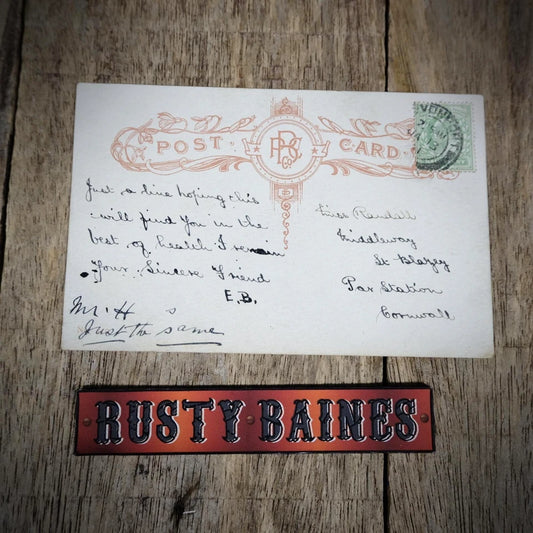 POST CARD
Just a line hoping this
will find you in the
best of health I remain
Your Sincere Friend
E.B.
Mr. H s
Just the same
Miss Randall
Middleway
St Blazey
Par Station
Cornwall
RUSTY BAINES